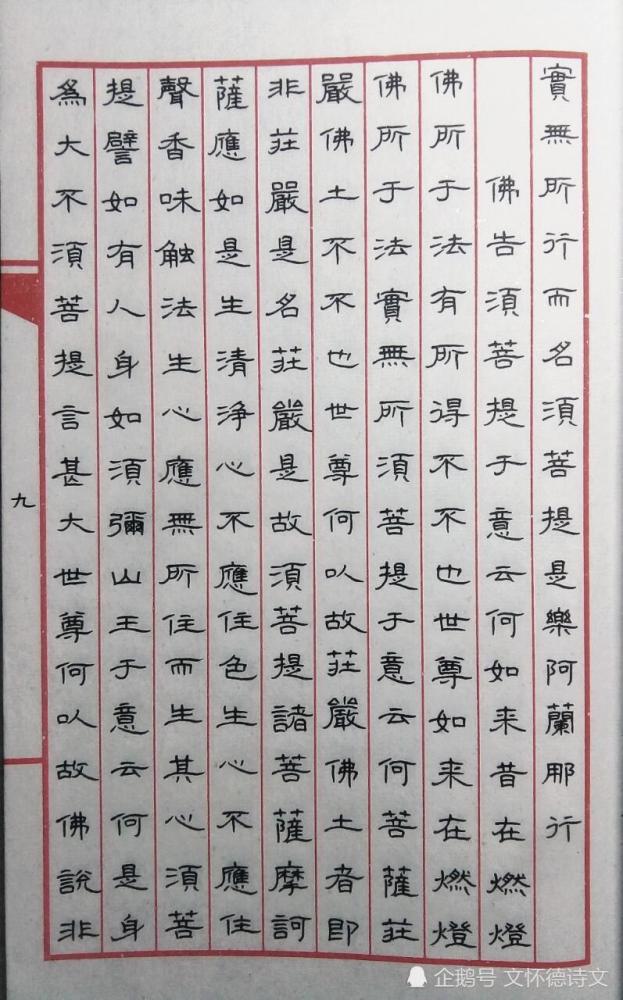 實無所行而名須菩提是樂阿蘭那行
佛告須菩提于意云何如来昔在燃燈
佛所于法有所得不不也世尊如来在燃燈
佛所于法實無所須菩提于意云何菩薩莊
嚴佛土不不也世尊何以故莊嚴佛土者即
非莊嚴是名莊嚴是故須菩提諸菩薩摩訶
薩應如是生清浄心不應住色生心不應住
聲香味触法生心應無所住而生其心須菩
提譬如有人身如須彌山王于意云何是身
為大不須菩提言甚大世尊何以故佛說非
九
企鹅号 文怀德诗文